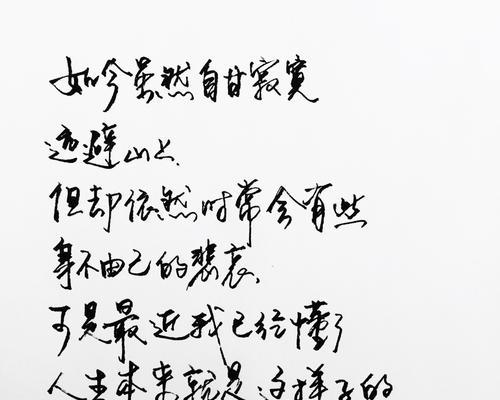 如今虽然自甘寂寞
遁避山上
但却依然时常会有些
身不由己的悲哀
可是最近我已经懂了
人生本来就是这样子的